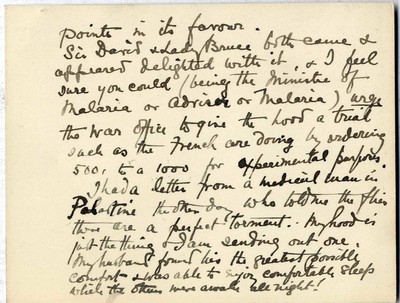 points in its favour.
Sir David & Lady Bruce both came &
appeared delighted with it, & I feel
sure you could (being the Ministre of
Malaria or Adviser or Malaria) urge
the War Office to give the hood a trial
such as the French are doing by ordering
500, to a 1000 for experimental purposes.
I had a letter from a medical man in
Palestine the other day who told me the flies
there are a perfect torment. My hood is
just the thing & I am sending out one.
My husband found his the greatest possible
comfort & was able to enjoy comfortable sleeps
while the others were awake all night!